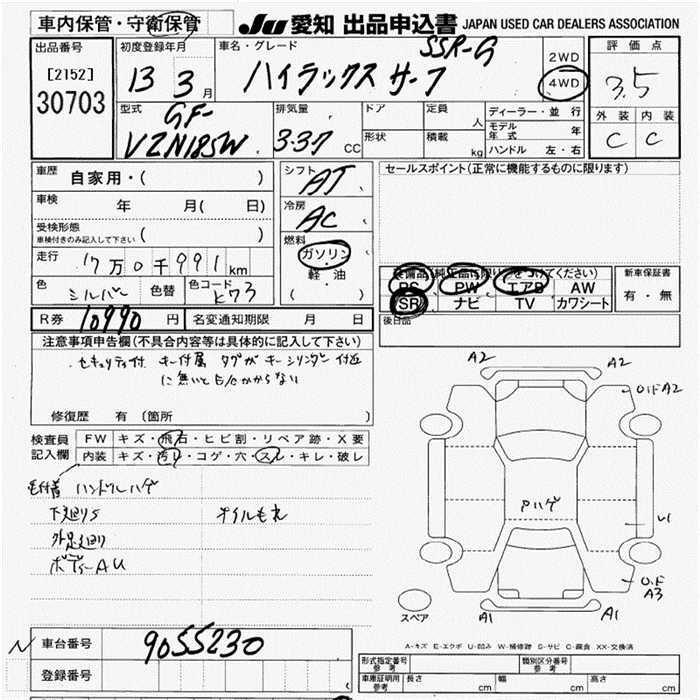 車内保管・守衛保管
JU 愛知 出品申込書 JAPAN USED CAR DEALERS ASSOCIATION
出品番号
[2152]
30703
初度登録年月
13 3月
車名・グレード
SSR-G
ハイラックスサーフ
2WD
4WD
評価点
3.5
外装 内装
C C
型式
GF-
VZN185W
排気量
3.37 CC
ドア
形状
定員 人
積載 kg
ディーラー・並行
モデル年式 年
ハンドル 左・右
車歴
自家用・( )
車検 年 月( 日)
受検形態
車検付きのみ記入して下さい ( )
走行 17万0千991km
色 シルバー 色替 色コード
R券 10990円 名変通知期限 月 日
シフト AT
冷房 AC
燃料
ガソリン
・
軽・油
( )
セールスポイント(正常に機能するものに限ります)
装備品(純正品に限り○をつけてください)
PS PW エアB AW
SR ナビ TV カワシート
新車保証書
有・無
後日品
注意事項申告欄(不具合内容等は具体的に記入して下さい)
セキュリティ付 キー付属 タグがキーシリンダー付近
に無いとE/Gかからない
修復歴 有 (箇所 )
検査員
記入欄
FW キズ・飛石・ヒビ割・リペア跡・X要
内装 キズ・汚レ・コゲ・穴・スレ・キレ・破レ
ハンドルハゲ
下廻りS オイルもれ
外足廻り
ボディーAU
A2 A2
U.F A2
Pハゲ
U1
U.F
A3
A1 A1
スペア
A-キズ E-エクボ U-凹み W-補修跡 S-サビ C-腐食 XX-交換済
N 車台番号 9055230
登録番号
型式指定番号 参考
類別区分番号 参考
車庫証明用 参考 長さ cm 幅 cm 高さ cm